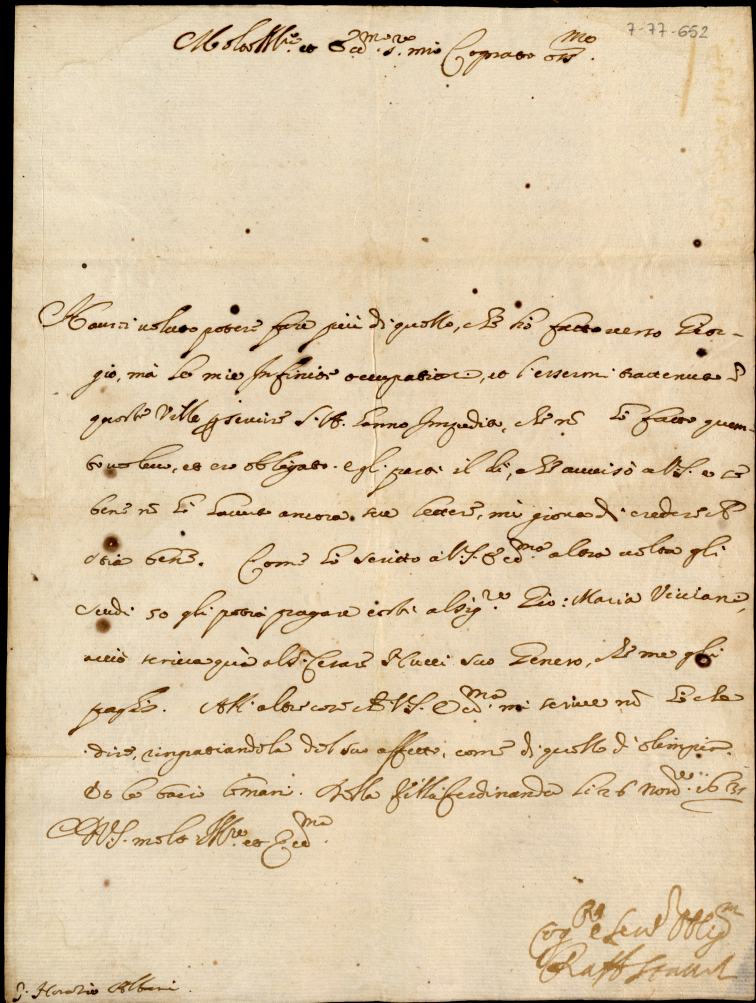 7-77-652
Molto Ill.re et Ecc.mo s.re mio Cognato oss.mo
Haurei voluto potere fare più di quello, che hò fatto verso Gior-
gio, mà le mie Infinite occupationi, et l'essermi trattenuto
queste Ville servire S.A. hanno Impedito, che nõ hò fatto quan-
to volevo, et ero obligato. egli partì il dì, che avvisò a V.S. e se
bene nõ hò havuto ancora sue lettere, mi giova di credere che
stia bene. Come hò scritto a V.S. Ecc.ma altra volta gli
scudi 50 gli potrà pagare costì al sig.re Gio: Maria Viviani,
acciò scriva quà al s. Cesare Nucci suo Genero, che me gli
paghi. All'altre cose che V.S. Ecc.ma mi scrive nõ hò che
dire, ringratiandola del suo affetto, come di quello d'olimpia.
Et le bacio le mani. Della Villa Ferdinanda li 26 Nov.re 1631
Di V.S. molto Ill.re et Ecc.ma
Cog.to e Ser.e Obblig.mo
Raff
s. Horatio Albani